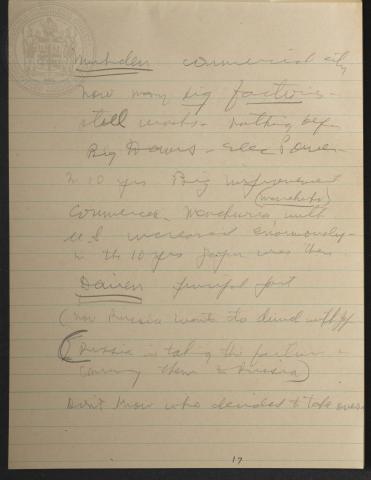 Mukden commercial city
now many big factories -
steel works - nothing before
Big Dams - Elec Power -
In 10 yrs Big improvement
(Manchuko)
Commerce - Manchuria with
U.S. increased enormously -
in the 10 yrs Japan was there
Dairen principal port
(now Russia wants to
(Russia is taking the factories &
carrying them to Russia)
Don't know who decided to take over
17